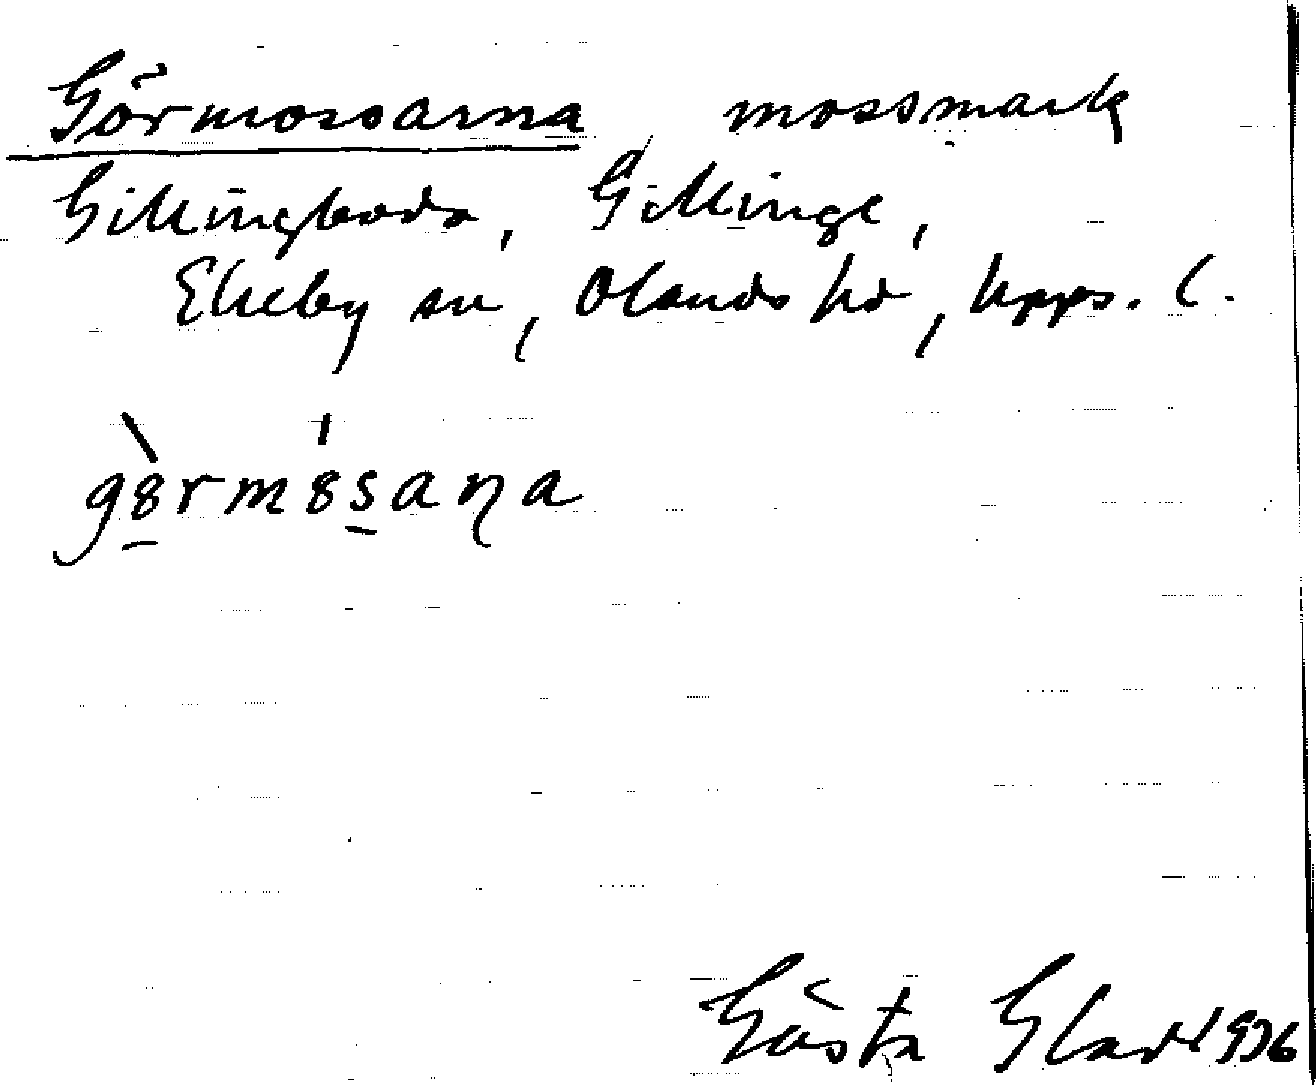 Görmossarna, mossmark
Gillingboda, Gillinge,
Ekeby sn, Olands hd, Upps. l.
gö̀rmösaɳa
Gösta Glad 1936